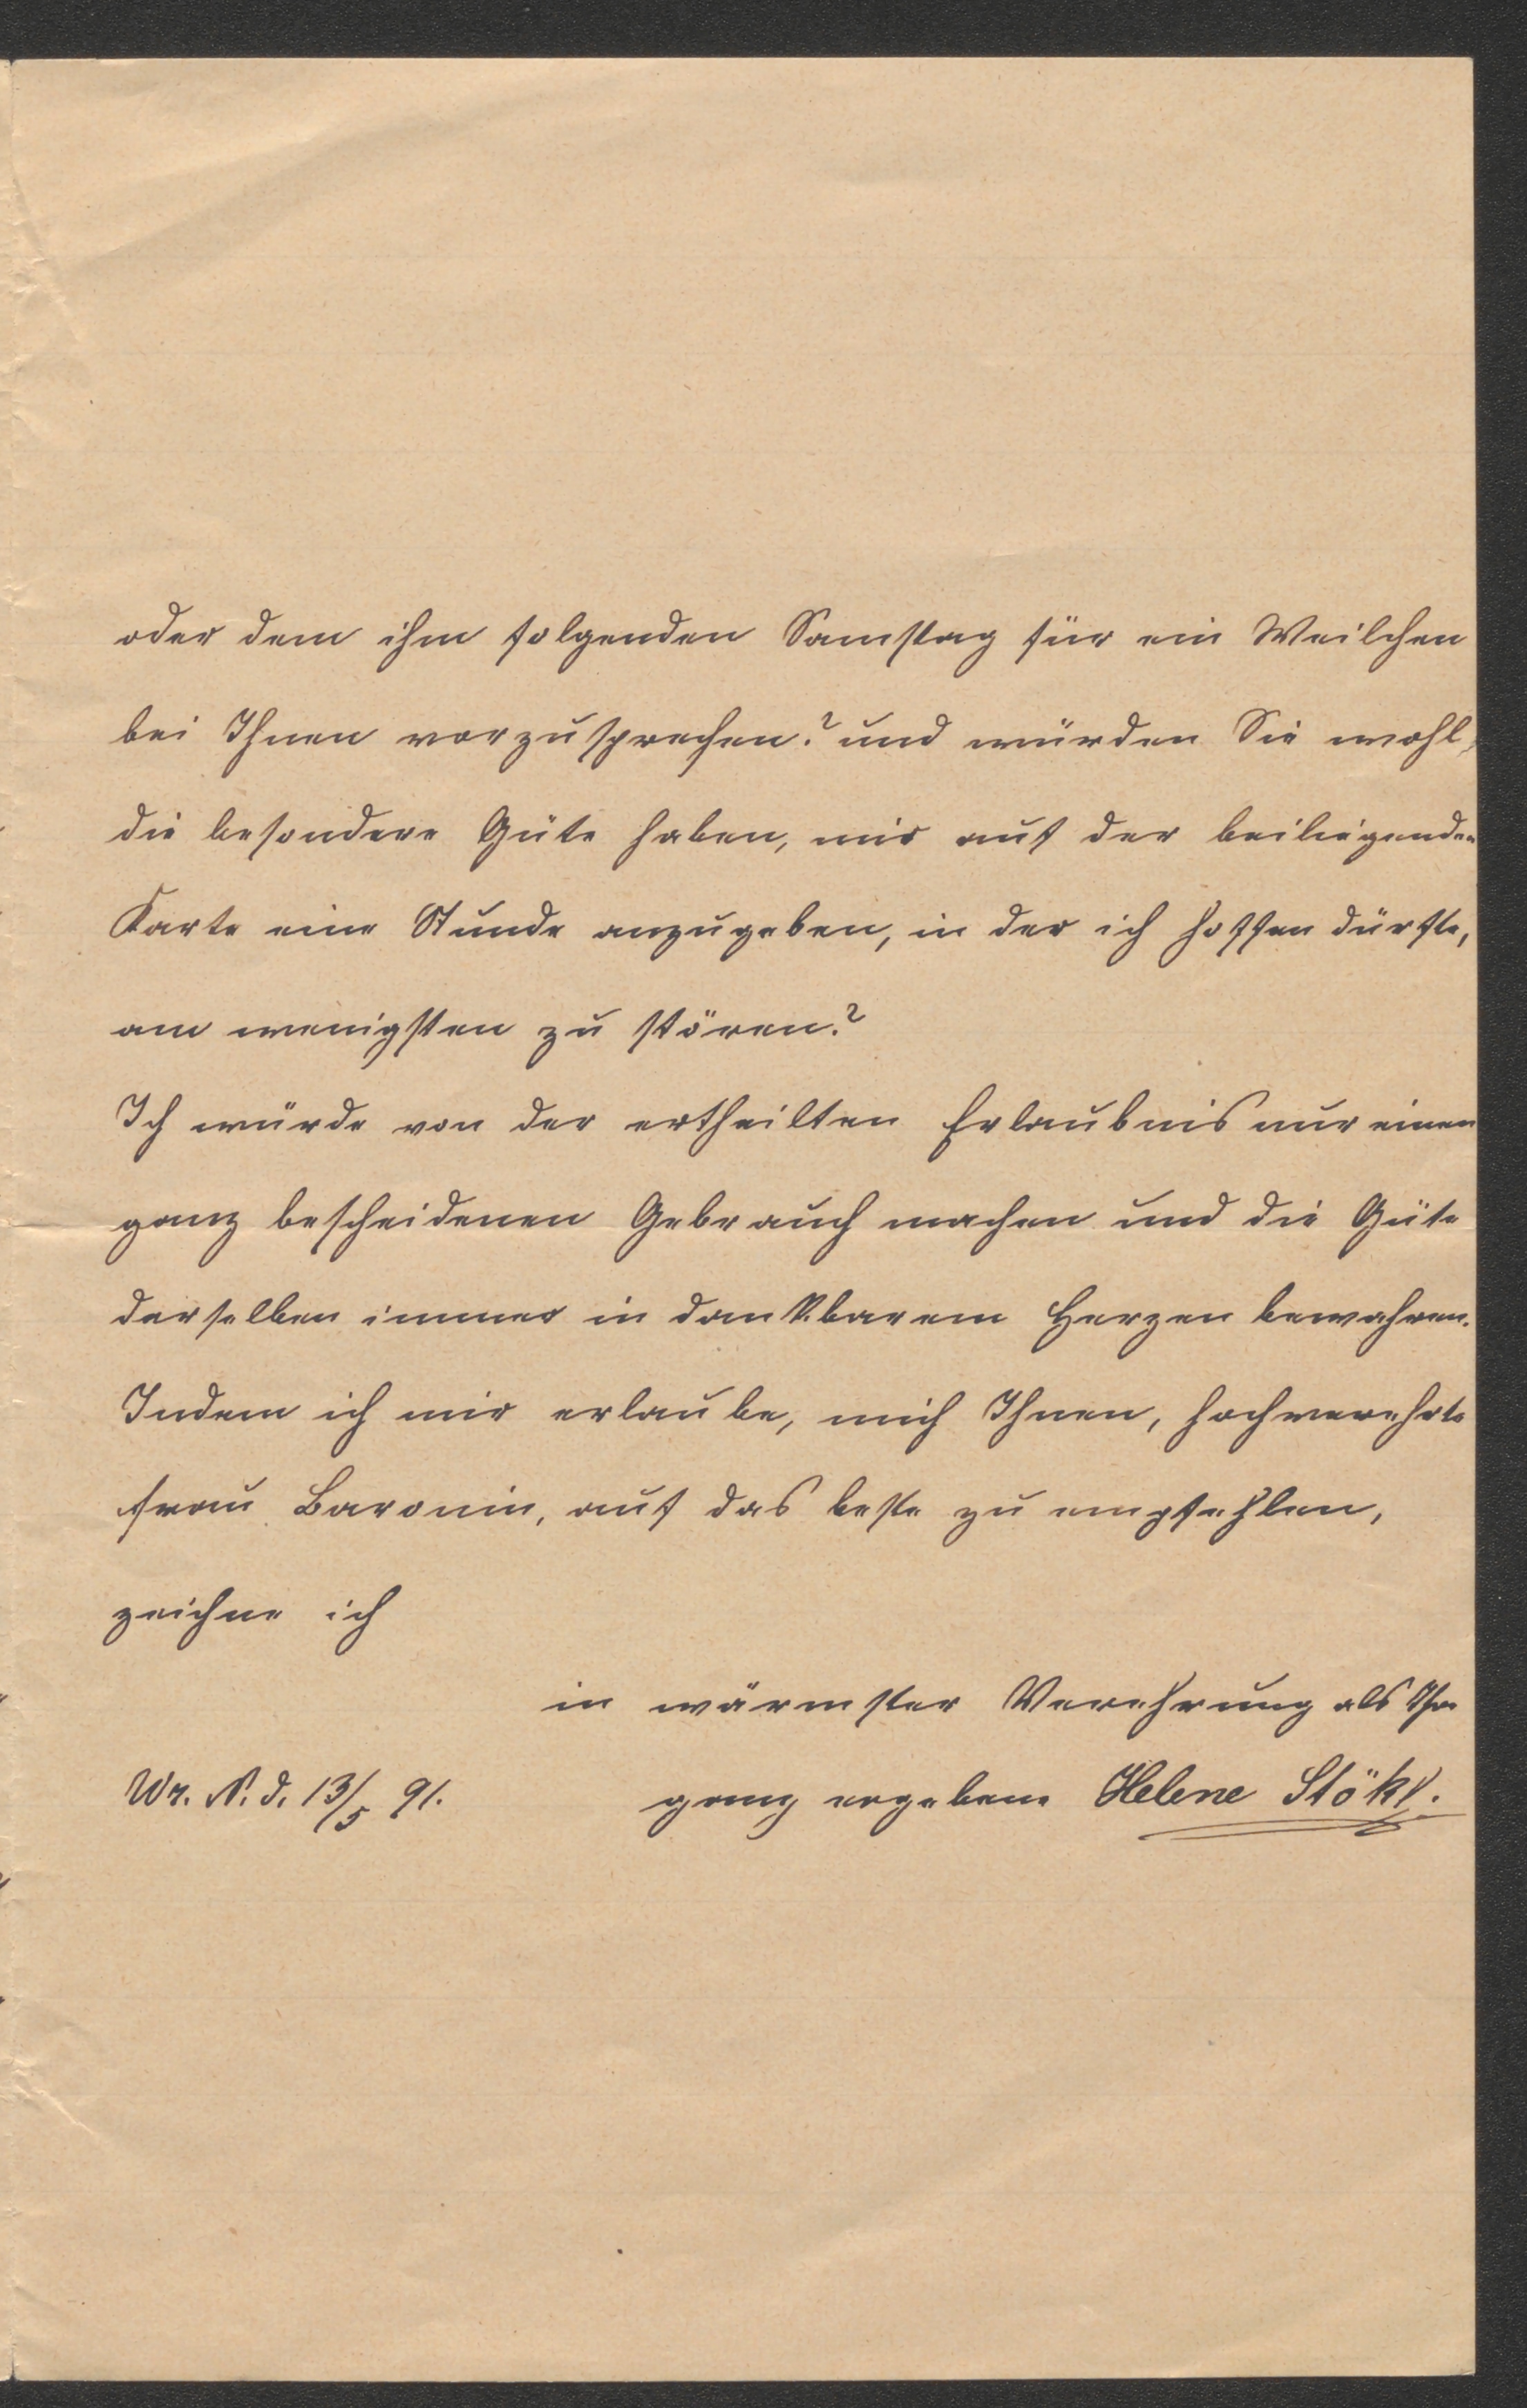 oder dem ihm folgenden Samstag für ein Weilchen
bei Ihnen vorzusprechen? und würden Sie wohl,
die besondere Güte haben, mir auf der beiliegenden
Karte eine Stunde anzugeben, in der ich hoffen dürfte,
am wenigsten zu stören?
Ich würde von der ertheilten Erlaubnis nur einen
ganz bescheidenen Gebrauch machen und die Güte
derselben immer in dankbarem Herzen bewahren.
Indem ich mir erlaube, mich Ihnen, hochverehrte
Frau Baronin, auf das beste zu empfehlen,
zeichne ich
in wärmster Verehrung als Ihre
Wr. N. d. 13/5 91. ganz ergebene Helene Stökl.